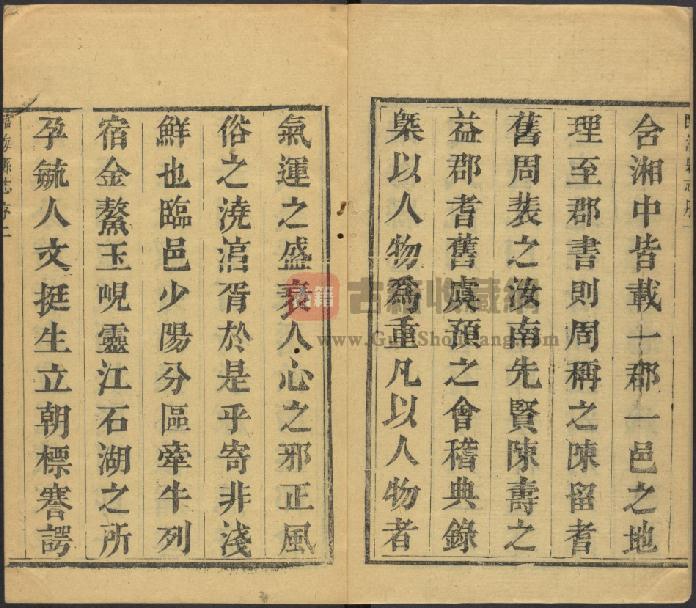 含湘中皆載一郡一邑之地
理至郡書則周稱之陳留耆
舊周裴之汝南先賢陳壽之
益郡耆舊虞預之會稽典錄
槩以人物爲重凡以人物者
氣運之盛衰人心之邪正風
俗之澆湻胥於是乎寄非淺
鮮也臨邑少陽分區牽牛列
宿金鰲玉峴靈江石湖之所
孕毓人文挺生立朝標謇諤
古籍收藏網